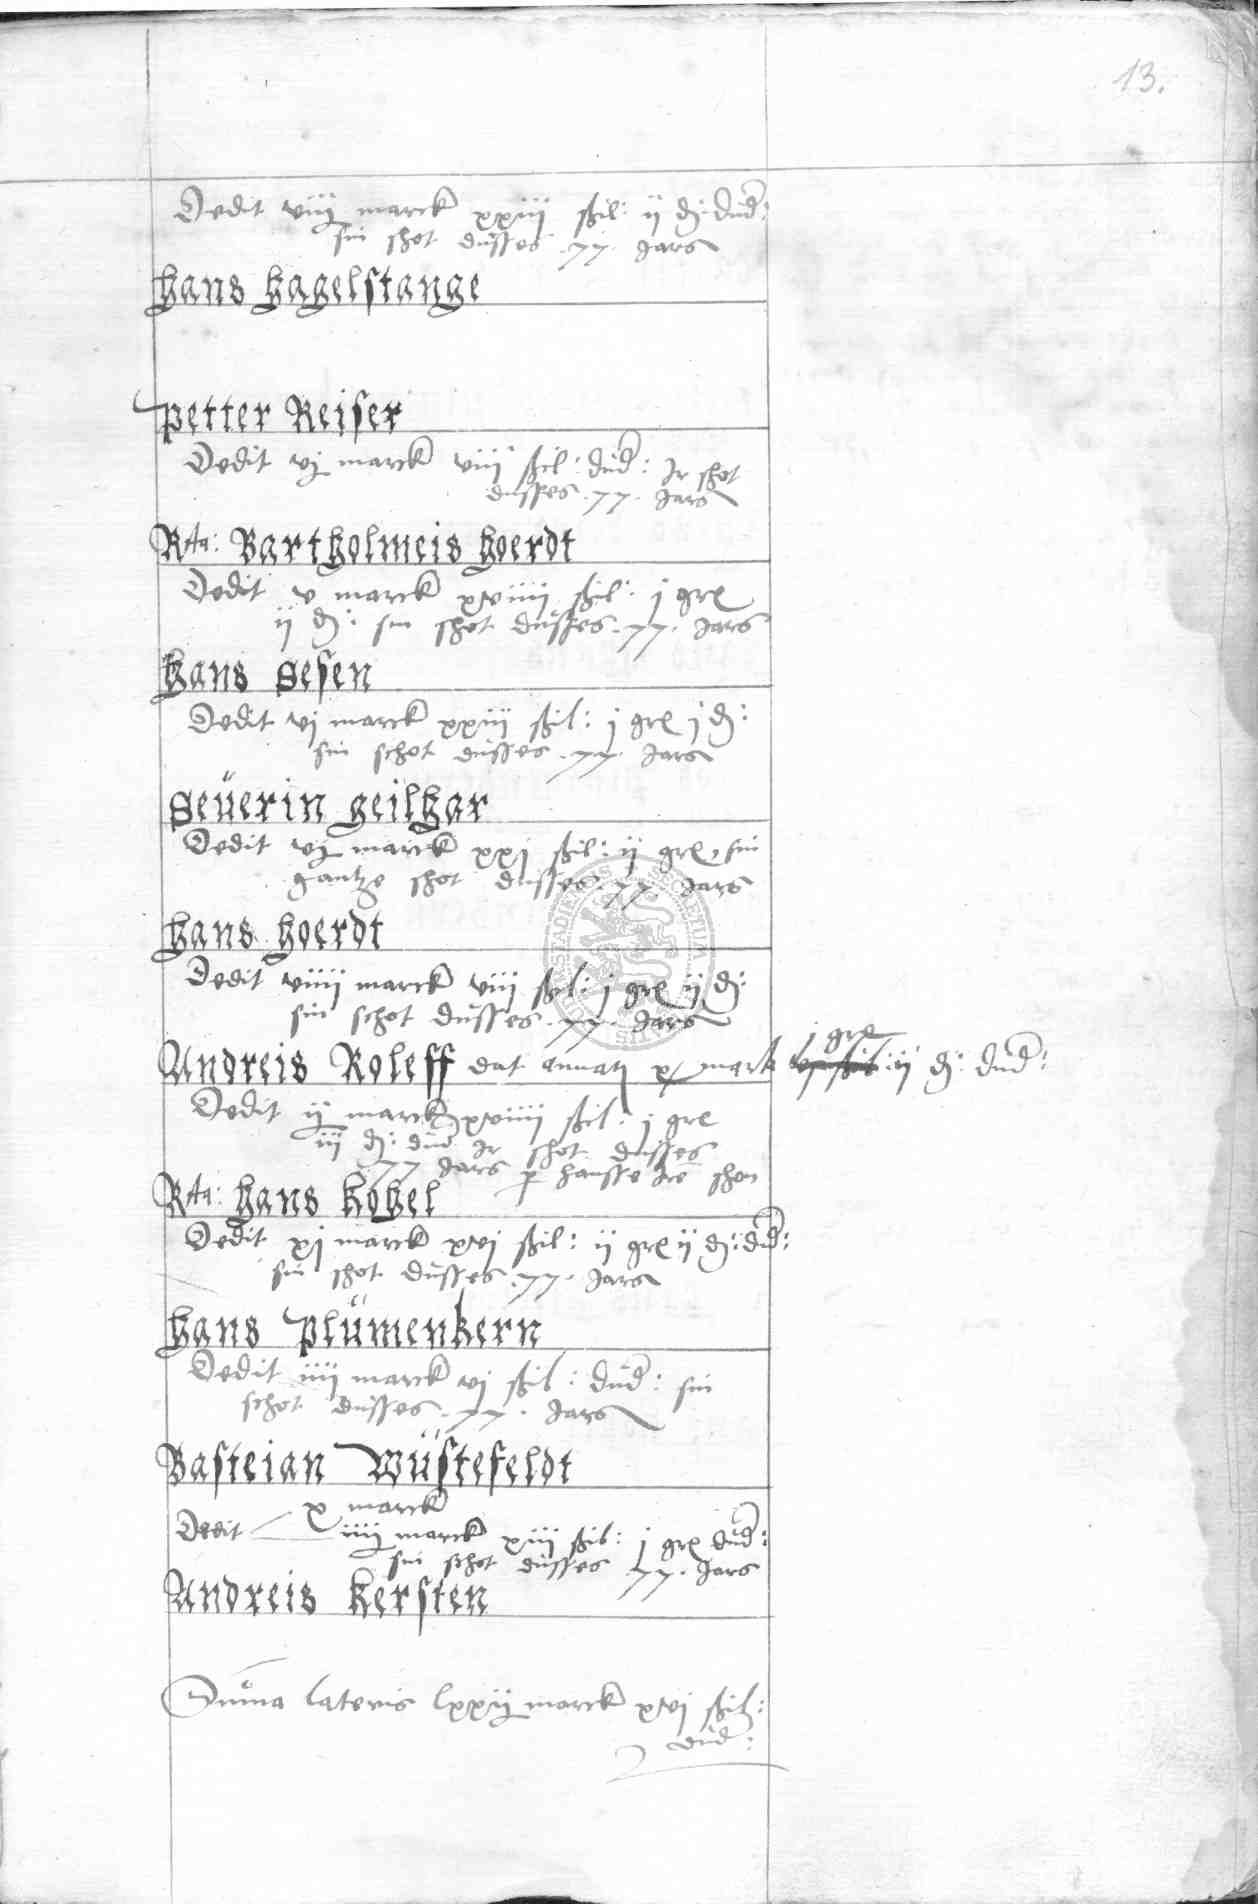 13.
Dedit viij marck xxiij ßil: ij ₰: düd:
sin schot düsses .77. Jars
Hans Hagelstange
Petter Reiser
Dedit vj marck viij ßil: düd: Jr schot
düsses .77. Jars
Rta: Bartholmeis Hoerdt
Dedit v marck xviiij ßil: j grl
ij ₰: sin schot düsses .77. Jars
Hans Sesen
Dedit vj marck xxiij ßil: j grl j ₰:
sin schot düsses .77. Jars
Seüerin Geilhar
Dedit vj marck xxj ßil: ij grl, sin
gantze schot düsses .77. Jars
Hans Hoerdt
Dedit viiij marck viij ßil: j grl ij ₰:
sin schot düsses .77. Jars
j grl
Andreis Roleff dat annatj x mark vj ßil: ij ₰: düd:
Dedit ij marck xviiij ßil: j grl
iij ₰: düd Jr schot düsses
77 Jars hansse schon
Rta: Hans Kobel
Dedit xj marck xvj ßil: ij grl ij ₰: düd:
sin schot düsses .77. Jars
Hans Plümenkern
Dedit iiij marck vj ßil: düd: sin
schot düsses .77. Jars
Basteian Wüstefeldt
x marck
Dedit iiij marck xiij ßil: j grl düd:
sin schot düsses 77. Jars
Andreis Kersten
Suma lateris lxxij marck xvj ßil:
düd:
SECRETUM